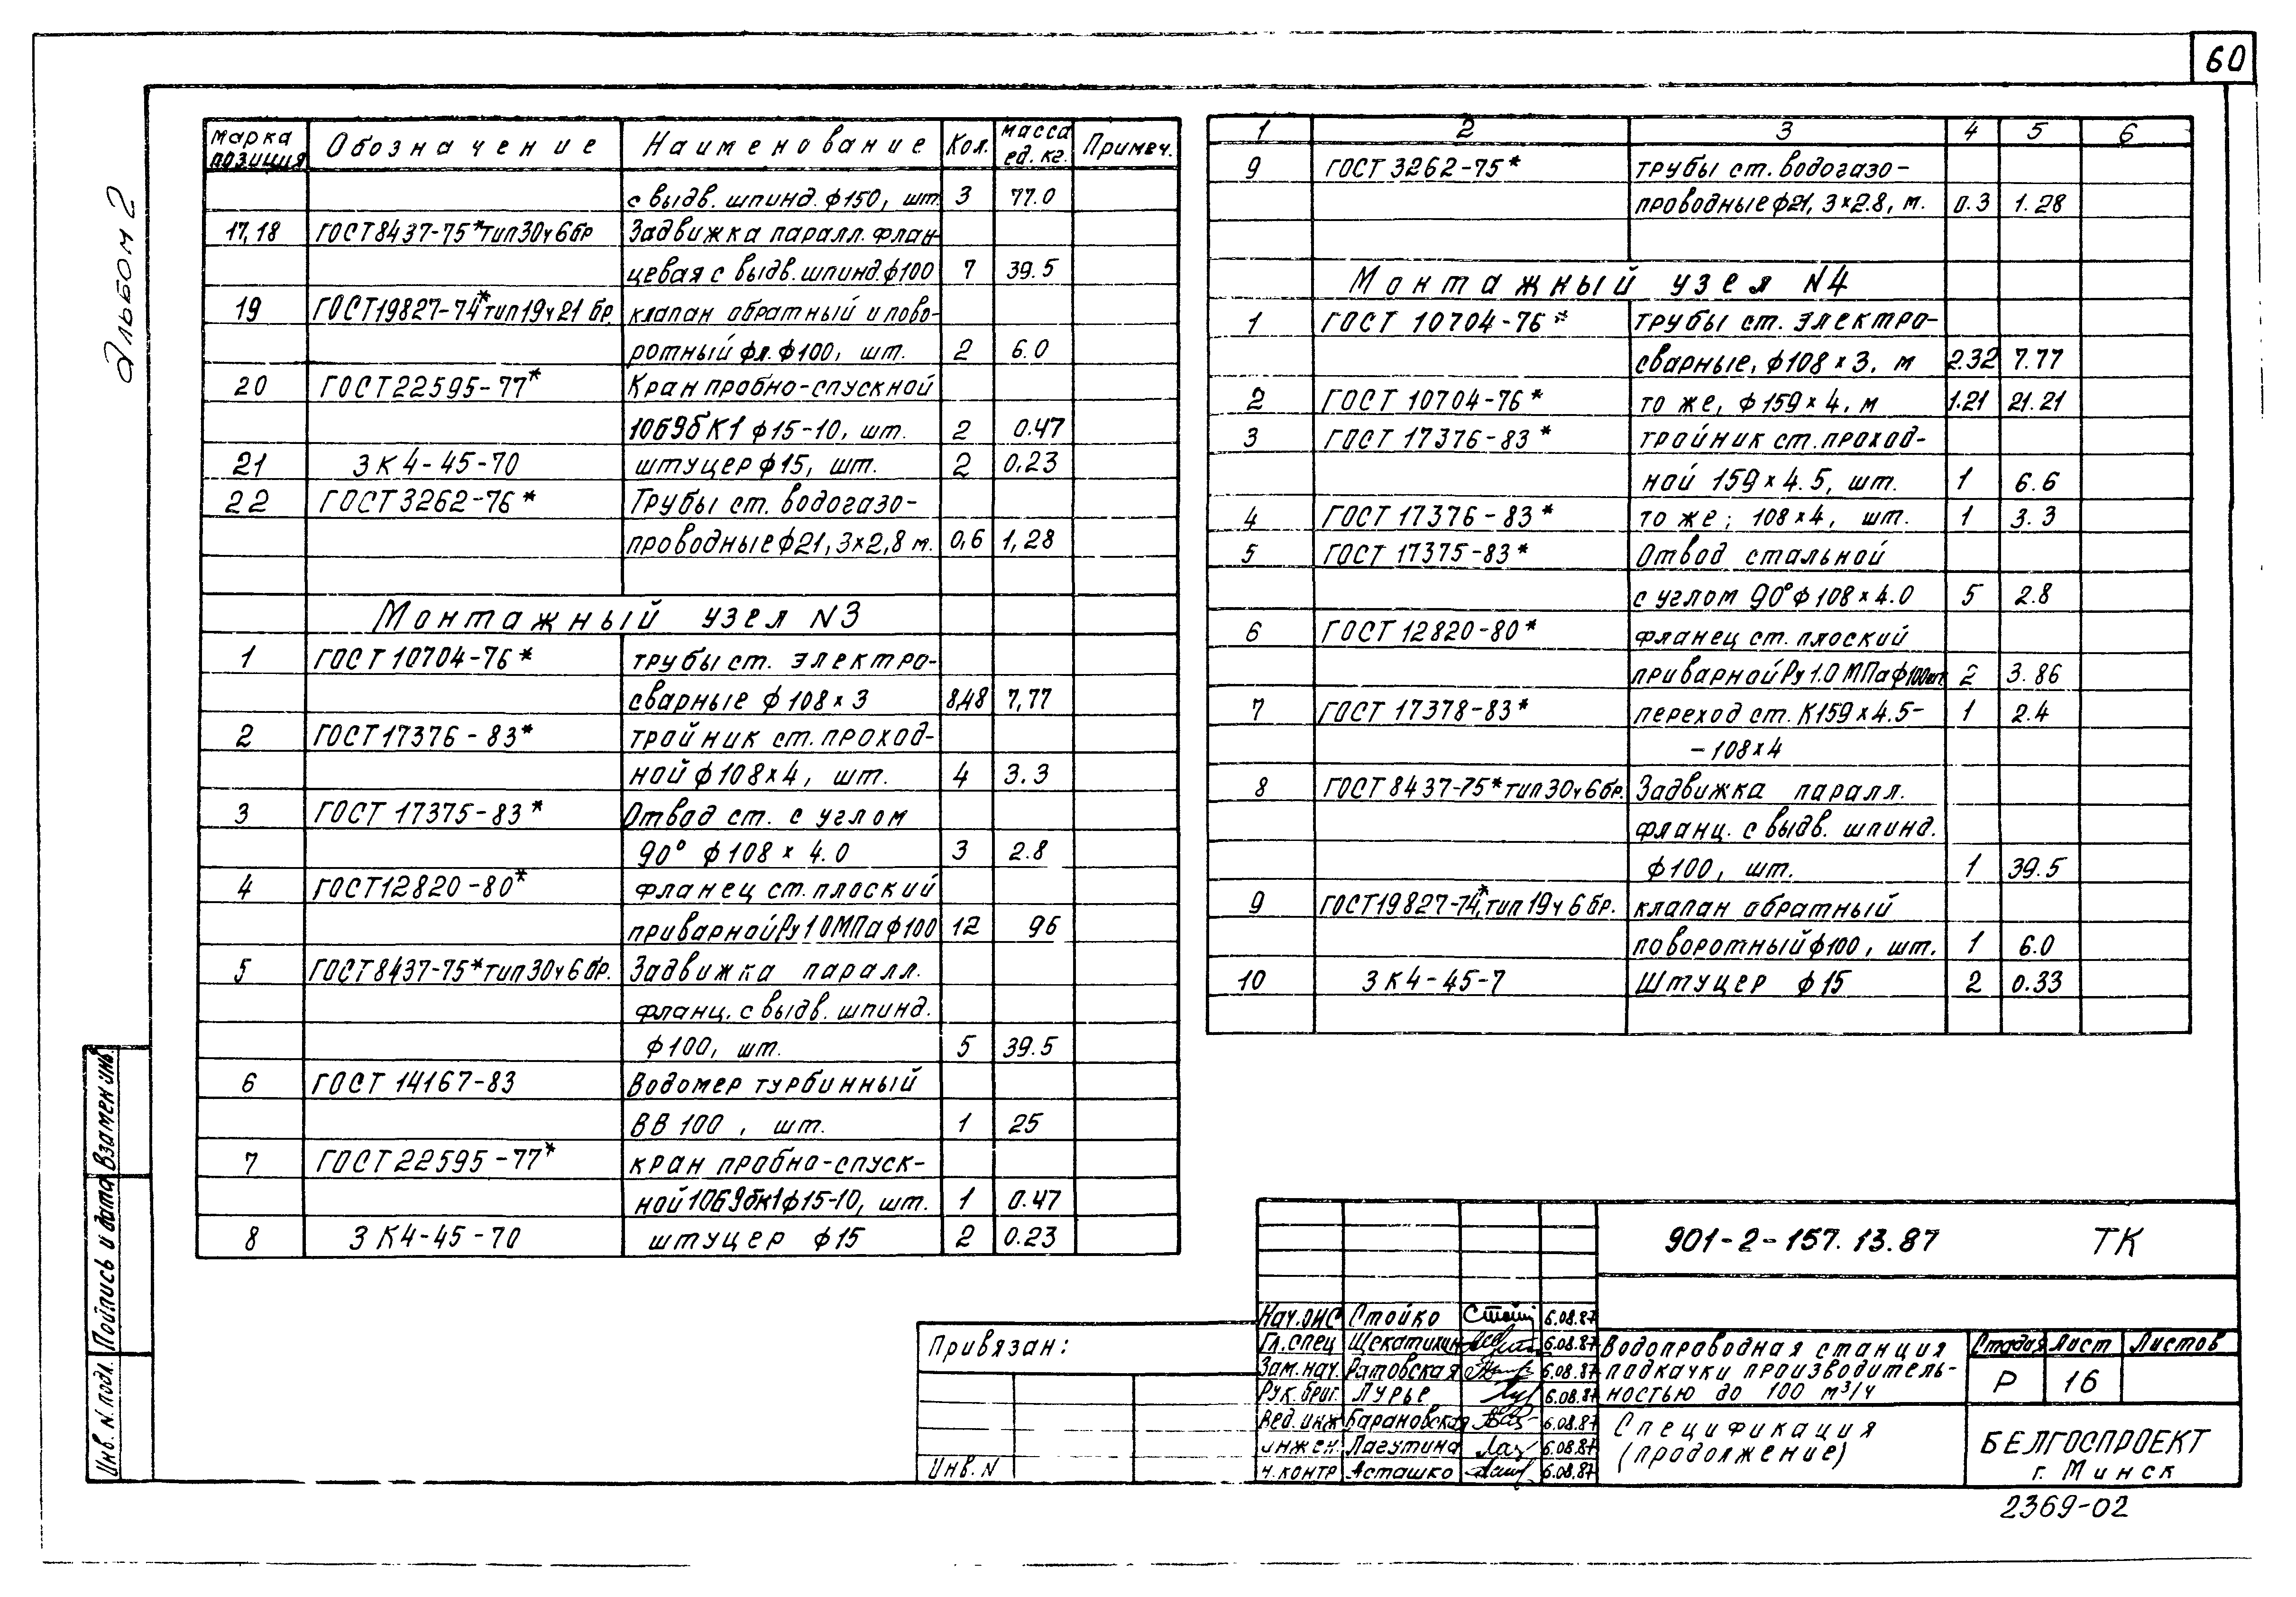 60
Альбом 2
Марка позиция Обозначение Наименование Кол. Масса ед. кг. Примеч.
с выдв. шпинд. ф150, шт. 3 77.0
17,18 ГОСТ8437-75* тип30ч6бр Задвижка паралл. флан-
цевая с выдв. шпинд. ф100 7 39.5
19 ГОСТ19827-74* тип19ч21бр. клапан обратный и пово-
ротный фл. ф100, шт. 2 6.0
20 ГОСТ22595-77* Кран пробно-спускной
10б9бК1 ф15-10, шт. 2 0.47
21 ЗК4-45-70 штуцер ф15, шт. 2 0,23
22 ГОСТ3262-76* Трубы ст. водогазо-
проводные ф21,3×2,8 м. 0,6 1,28
Монтажный узел N3
1 ГОСТ10704-76* трубы ст. электро-
сварные ф108×3 8,48 7,77
2 ГОСТ17376-83* тройник ст. проход-
ной ф108×4, шт. 4 3.3
3 ГОСТ 17375-83* Отвод ст. с углом
90° ф108×4.0 3 2.8
4 ГОСТ12820-80* фланец ст. плоский
приварной Ру 1 0МПа ф100 12 96
5 ГОСТ8437-75* тип30ч6бр. Задвижка паралл.
фланц. с выдв. шпинд.
ф100, шт. 5 39.5
6 ГОСТ 14167-83 Водомер турбинный
ВВ 100, шт. 1 25
7 ГОСТ22595-77* кран пробно-спуск-
ной 10б9бк1 ф15-10, шт. 1 0.47
8 ЗК4-45-70 штуцер ф15 2 0.23
1 2 3 4 5 6
9 ГОСТ 3262-75* трубы ст. водогазо-
проводные ф21,3×2.8, м. 0.3 1.28
Монтажный узел N4
1 ГОСТ 10704-76* трубы ст. электро-
сварные, ф108×3, м 2.32 7.77
2 ГОСТ 10704-76* то же, ф159×4, м 1.21 21.21
3 ГОСТ 17376-83* тройник ст. проход-
ной 159×4.5, шт. 1 6.6
4 ГОСТ 17376-83* то же; 108×4, шт. 1 3.3
5 ГОСТ 17375-83* Отвод стальной
с углом 90° ф108×4.0 5 2.8
6 ГОСТ12820-80* фланец ст. плоский
приварной Ру 1.0 МПа ф100шт. 2 3.86
7 ГОСТ 17378-83* переход ст. К159×4.5- 1 2.4
-108×4
8 ГОСТ8437-75* тип30ч6бр. Задвижка паралл.
фланц. с выдв. шпинд.
ф100, шт. 1 39.5
9 ГОСТ19827-74*, тип19ч6бр. клапан обратный
поворотный ф100, шт. 1 6.0
10 ЗК4-45-7 Штуцер ф15 2 0.33
Инв. N подл. Подпись и дата Взамен инв
Привязан:
Инв. N
901-2-157.13.87 ТК
Нач. ОИС Стойко 6.08.87
Гл. спец Щекатихин 6.08.87
Зам. нач. Ратовская 6.08.87
Рук. бриг. Лурье 6.08.87
Вед. инж Барановская 6.08.87
инжен. Лагутина 6.08.87
н. контр Асташко 6.08.87
Водопроводная станция
подкачки производитель-
ностью до 100 м³/ч
Стадия Лист Листов
Р 16
Спецификация
(продолжение)
БЕЛГОСПРОЕКТ
г. Минск
2369-02